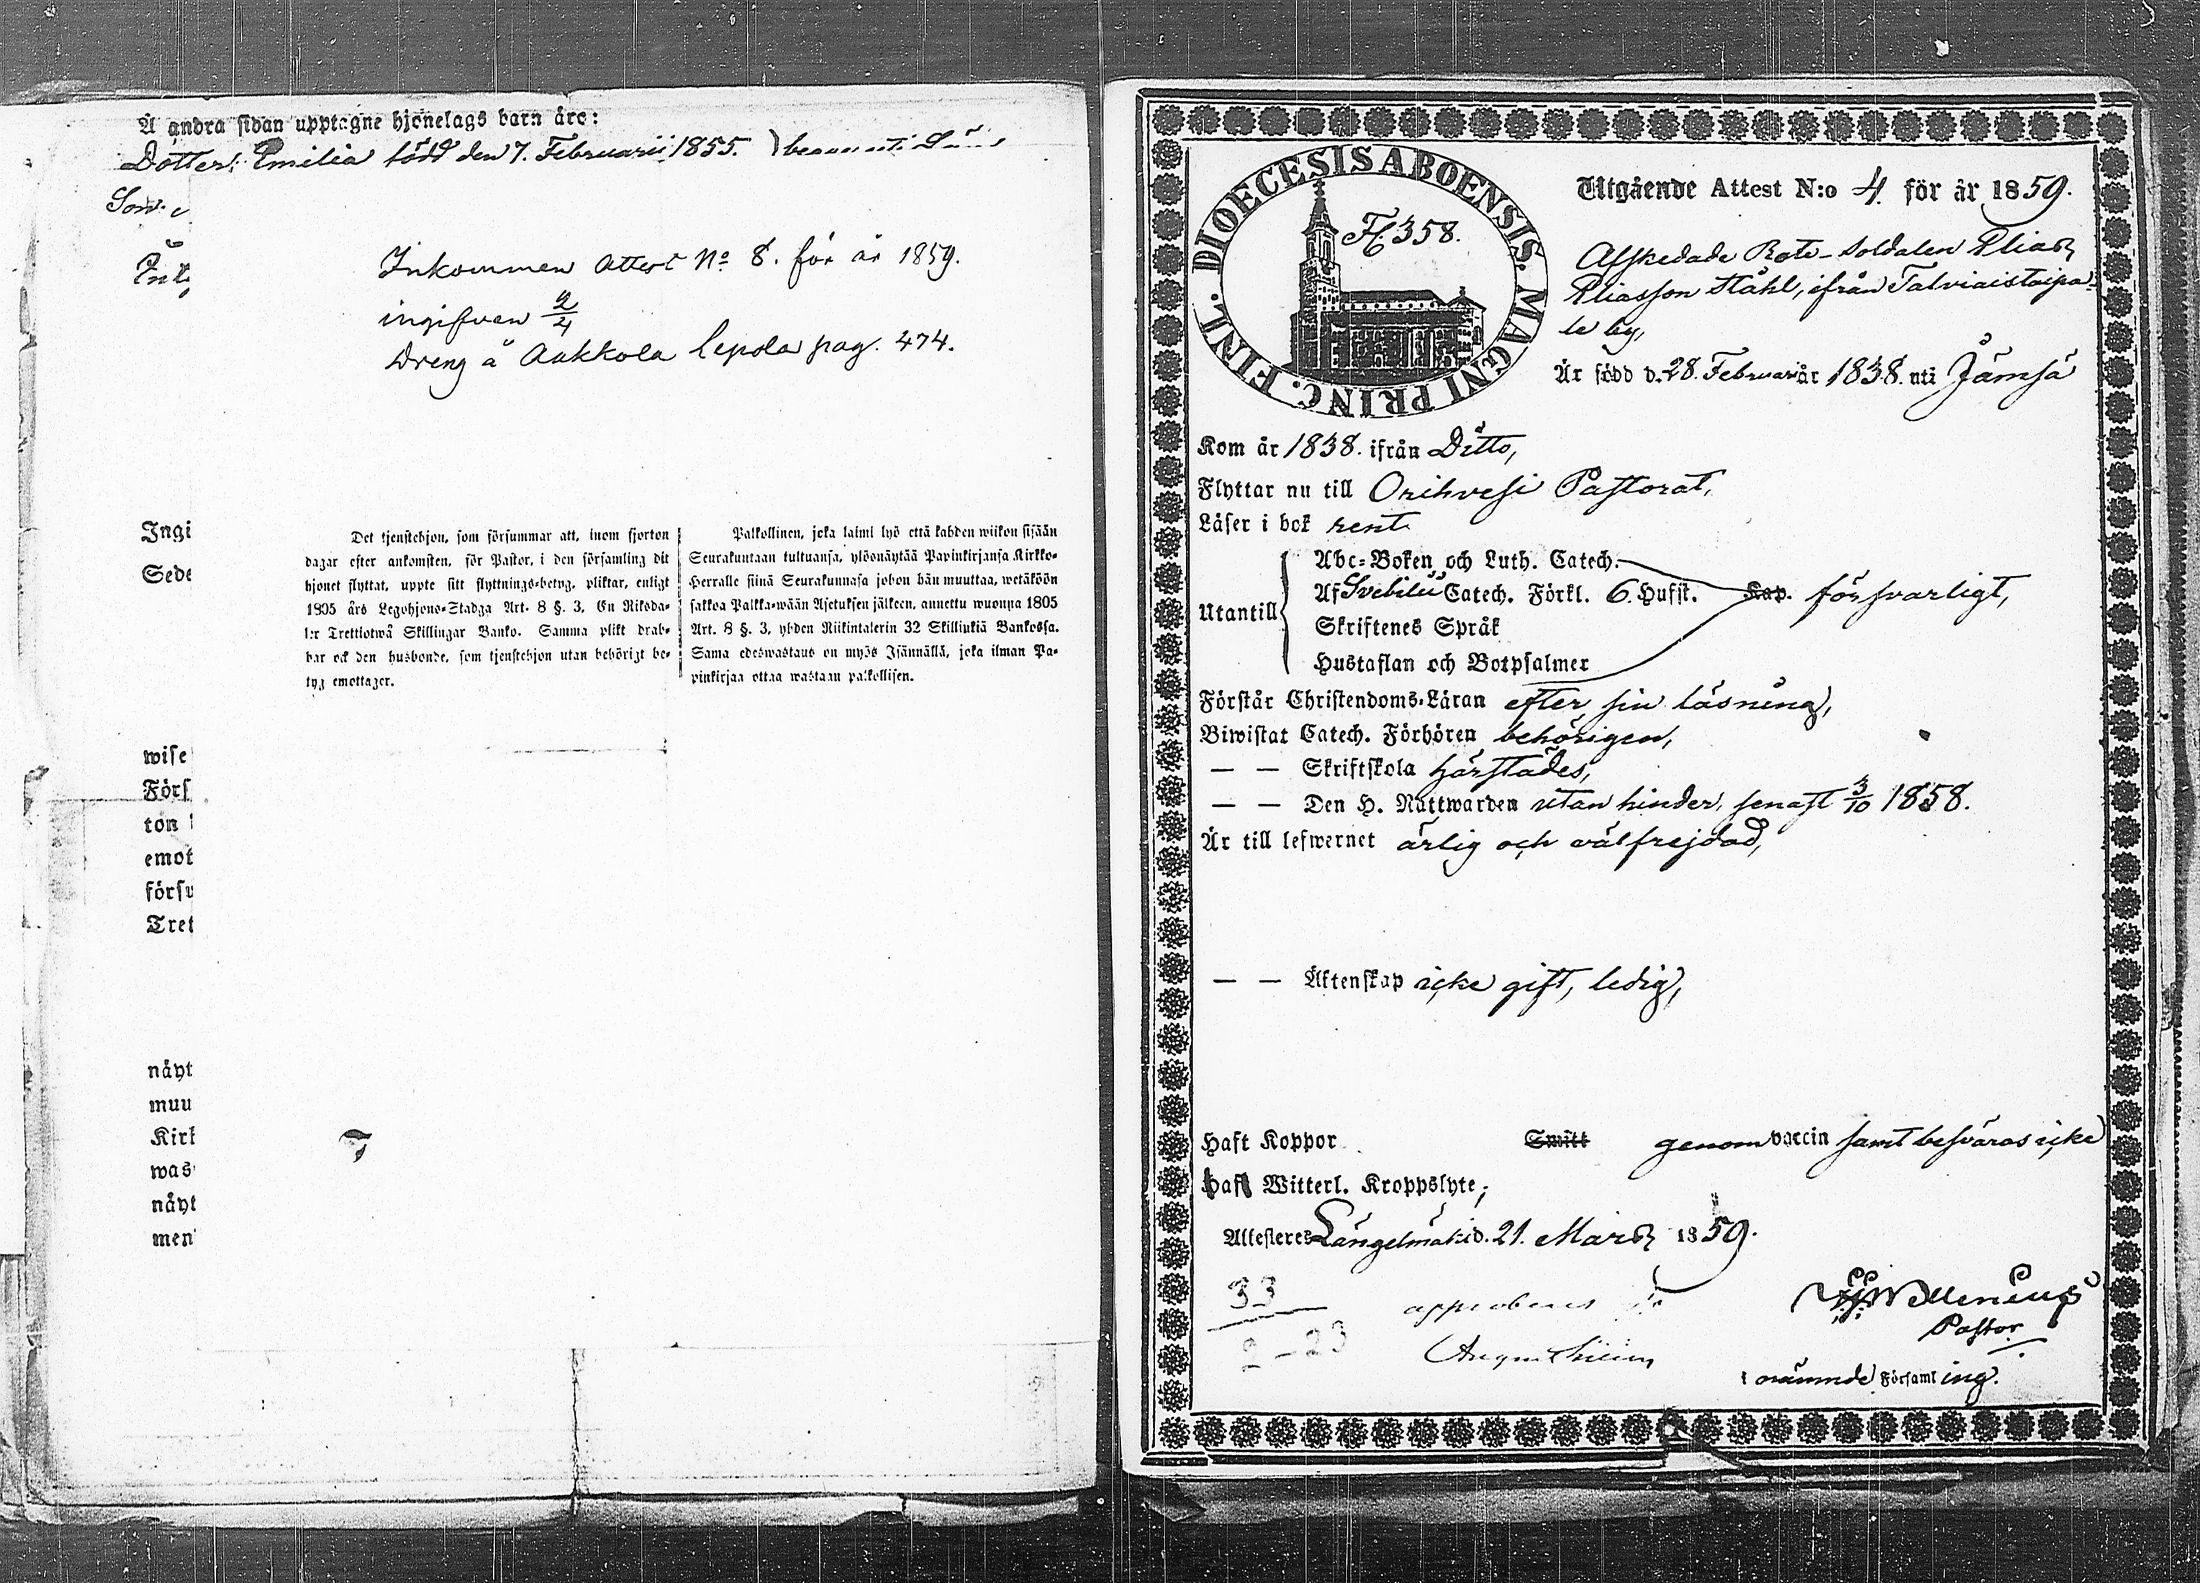 Å andra sidan upptagne hjonelags barn äro:
Dotter: Emilia född den 7. Februarii 1855.
Son:
Inkommen Attest No 8. för år 1859.
ingifven 2/4
Dreng å Aukkola Lepola pag. 474.
Ingi
Sede
Det tjenstehjon, som försummar att, inom fjorton
dagar efter ankomsten, för Pastor, i den församling dit
hjonet flyttat, uppte sitt flyttnings-betyg, pliktar, enligt
1805 års Legohjons-Stadga Art. 8 §. 3, En Riksda-
ler Trettiotwå Skillingar Banko. Samma plikt drab-
bar ock den husbonde, som tjenstehjon utan behörigt be-
tyg emottager.
Palkollinen, joka laimi lyö että kahden wiikon sisään
Seurakuntaan tultuansa, ylösnäytää Papinkirjansa Kirkko-
Herralle siinä Seurakunnasa johon hän muuttaa, wetäköön
sakkoa Palkka-wään Asetuksen jälkeen, annettu wuonna 1805
Art. 8 §. 3, yhden Riikintalerin 32 Skillinkiä Bankossa.
Sama edeswastaus on myös Isännällä, joka ilman Pa-
pinkirjaa ottaa wastaan palkollisen.
wise
Förs
ton
emot
försu
Tret
näyt
muu
Kirk
was
näyt
men
DIOECESIS ABOENSIS. MAGNI PRINC. FINL.
H. 358.
Utgående Attest N:o 4 för år 1859.
Afskedade Rote-Soldaten Elias
Eliasson Ståhl, ifrån Talviaistaipa-
le by,
Är född d. 28. Februari år 1838. uti Jämsä
Kom år 1838. ifrån Ditto,
Flyttar nu till Orihvesi Pastorat,
Läser i bok rent
Utantill
Abc-Boken och Luth. Catech.
Af Svebilii Catech. Förkl. 6. Hufst. Kap. försvarligt,
Skriftenes Språk
Hustaflan och Botpsalmer
Förstår Christendoms-Läran efter sin läsning,
Biwistat Catech. Förhören behörigen,
— — Skriftskola härstädes,
— — Den H. Nattwarden utan hinder, senast 3/10 1858.
Är till lefwernet ärlig och välfrejdad,
— — Äktenskap icke gift, ledig,
Haft Koppor Smitt genom vaccin samt besväras icke
Haft Witterl. Kroppslyte;
Attesteres Längelmäki d. 21. Mars 1859.
33
2-23
Pastor
i nämnde Församling.